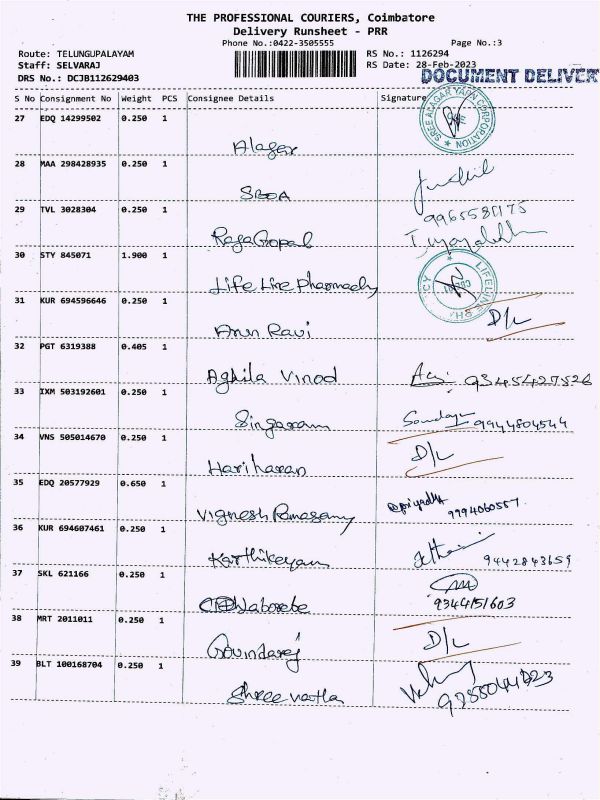 THE PROFESSIONAL COURIERS, Coimbatore
Delivery Runsheet - PRR
Phone No.:0422-3505555
Page No.:3
Route: TELUNGUPALAYAM
RS No.: 1126294
Staff: SELVARAJ
RS Date: 28-Feb-2023
DRS No.: DCJB112629403
DOCUMENT DELIVER
S No Consignment No Weight PCS Consignee Details Signature
27 EDQ 14299502 0.250 1
SREE ALAGAR YARN CORPORATION
Alager
28 MAA 298428935 0.250 1
SBOA
29 TVL 3028304 0.250 1
RajaGopal
30 STY 845071 1.900 1
Life Line Pharmacly
31 KUR 694596646 0.250 1
Arun Ravi D/L
32 PGT 6319388 0.405 1
Aghila Vinod 9345427526
33 IXM 503192601 0.250 1
Singaram 9944804544
34 VNS 505014670 0.250 1
Hariharan D/L
35 EDQ 20577929 0.650 1
Vignesh Ramasamy 9994060557
36 KUR 694607461 0.250 1
Karthikeyan 9442843659
37 SKL 621166 0.250 1
9344151603
38 MRT 2011011 0.250 1
Govindaraj D/L
39 BLT 100168704 0.250 1
Shree vatla